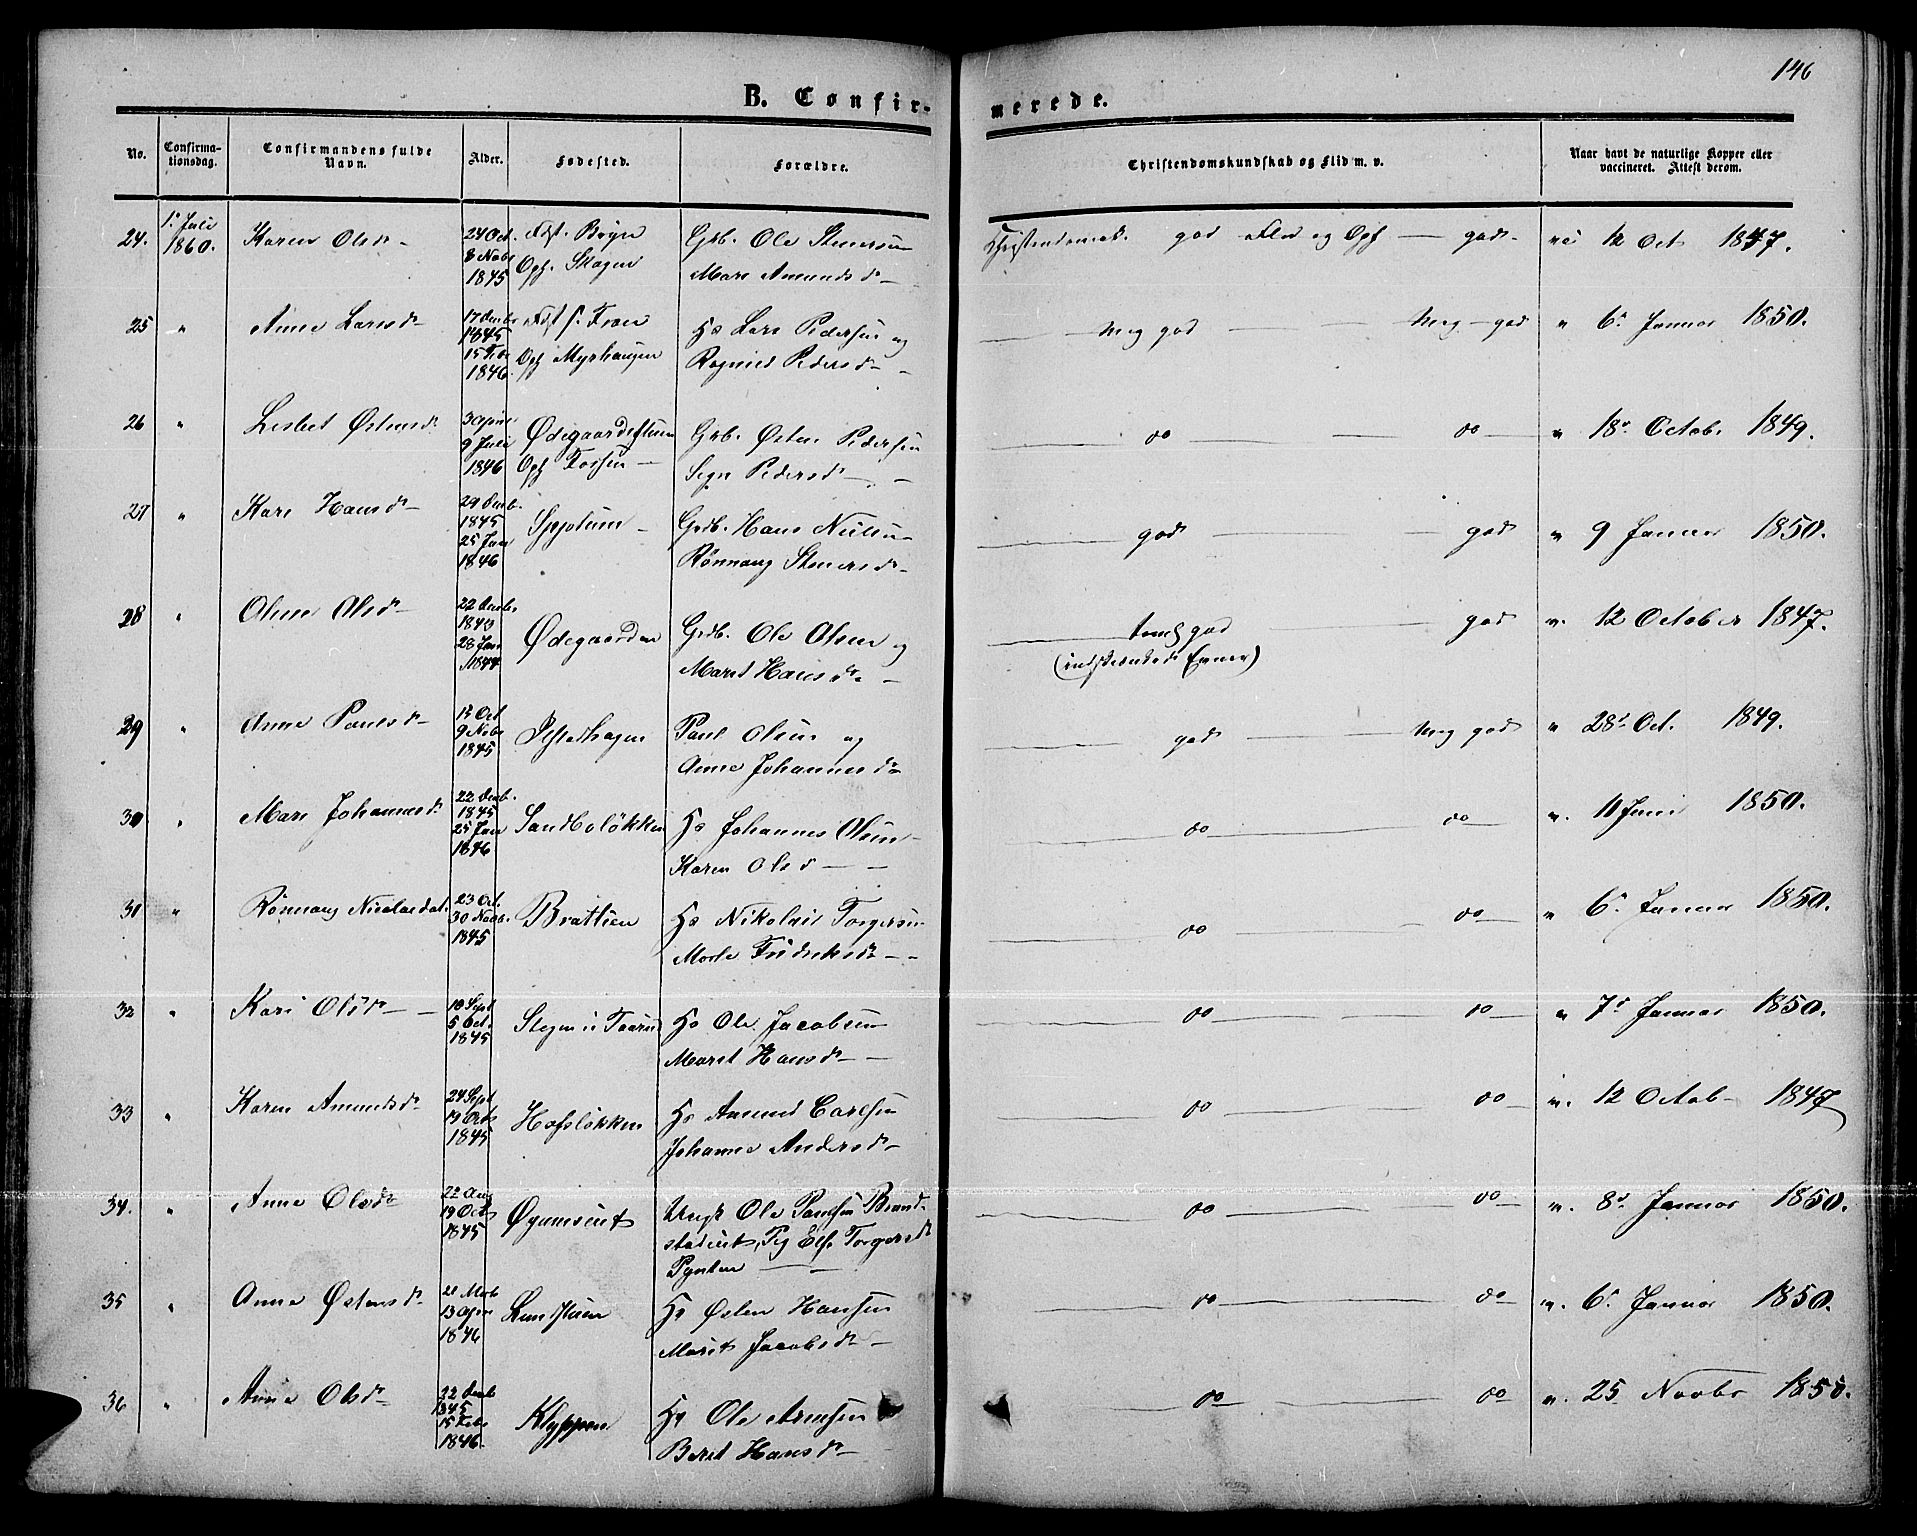 146
B. Confir-
merede.
No.
Confirma-
tionsdag.
Confirmandens fulde
Navn.
Alder.
Fødested.
Forældre.
Christendomskundskab og Flid m. v.
Naar havt de naturlige Kopper eller
vaccineret. Attest derom.
24. 1. Juli 1860. Karen Olsd 24 Oct. 8 Novbr 1845 Opf. Skagen Grb. Ole Stensen Mari Amundsd god Flid og Opf god 12 Oct 1847.
25 " Anne Larsd 17 Decbr 1845 15 Febr 1846. Opf Myrhaugen Hs Lars Pedersen og Ragnild Pedersd Meg god Meg god " 6 Januar 1850.
26 " Lisbet Østensd 3 April 9 Juli 1846 Ødegaardsstuen Opf Fossen Grb. Østen Pedersen Pedersd do do v 18 Octob. 1849.
27 " Kari Hansd 29 Decb. 1845 25 Jan 1846 Grdb. Hans Nielsen Rønnaug Stenersd god god v 9 Januar 1850.
28 " Oline Olsd 22 Decb. 28 Jan 1844 Ødegaarden Grdb. Ole Olsen og Marit Hansd temlig god (indskrænkede Evner) god v. 12 October 1847.
29 " Anne Paulsd 9 Nobr 1845 Paul Olsen og Anne Johannesd god Meg god v 28 Oct. 1849.
30 " Mari Johannesd 22 Decb. 1845 25 Jan 1846 Sandboløkken Hs Johannes Olsen Karen Olsd do do v. 11 Juni 1850.
31 " Rønnaug Nicolaidat. 23 Oct. 30 Novb. 1845 Brattien Hs Nikolai Torgersen Marte Fredriksd do do v 6 Januar 1850.
32 " Kari Olsd 10 Sept 5 Oct. 1845 Hs Ole Jacobsen Marit Hansd do do v 7 Januar 1850.
33 " Karen Amundsd 24 Sept 19 Octb 1845 Hofsløkken Hs Amund Carlsen Johanne Andersd do do v. 12 Octob 1847
34. " Anne Olsd 22 Aug 19 Octb 1845 Ungk Ole Paulsen Brand- Pig Torgersd Pynten do do v. 8 Januar 1850.
35 " Anne Østensd 21 Marts 13 April 1846 Hs Østen Hansen Marit Jacobsd do do v. 6 Januar 1850.
36 " Anne Olsd 22 Decb 1845 15 Febr 1846. Klyppen Hs Ole Arnesen Berit Hansd do do v. 25 Novbr 1850.